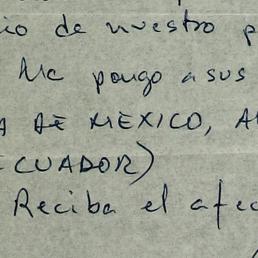 io de nuestro p
Me pongo a sus
A DE MEXICO, A
CUADOR)
Reciba el afec